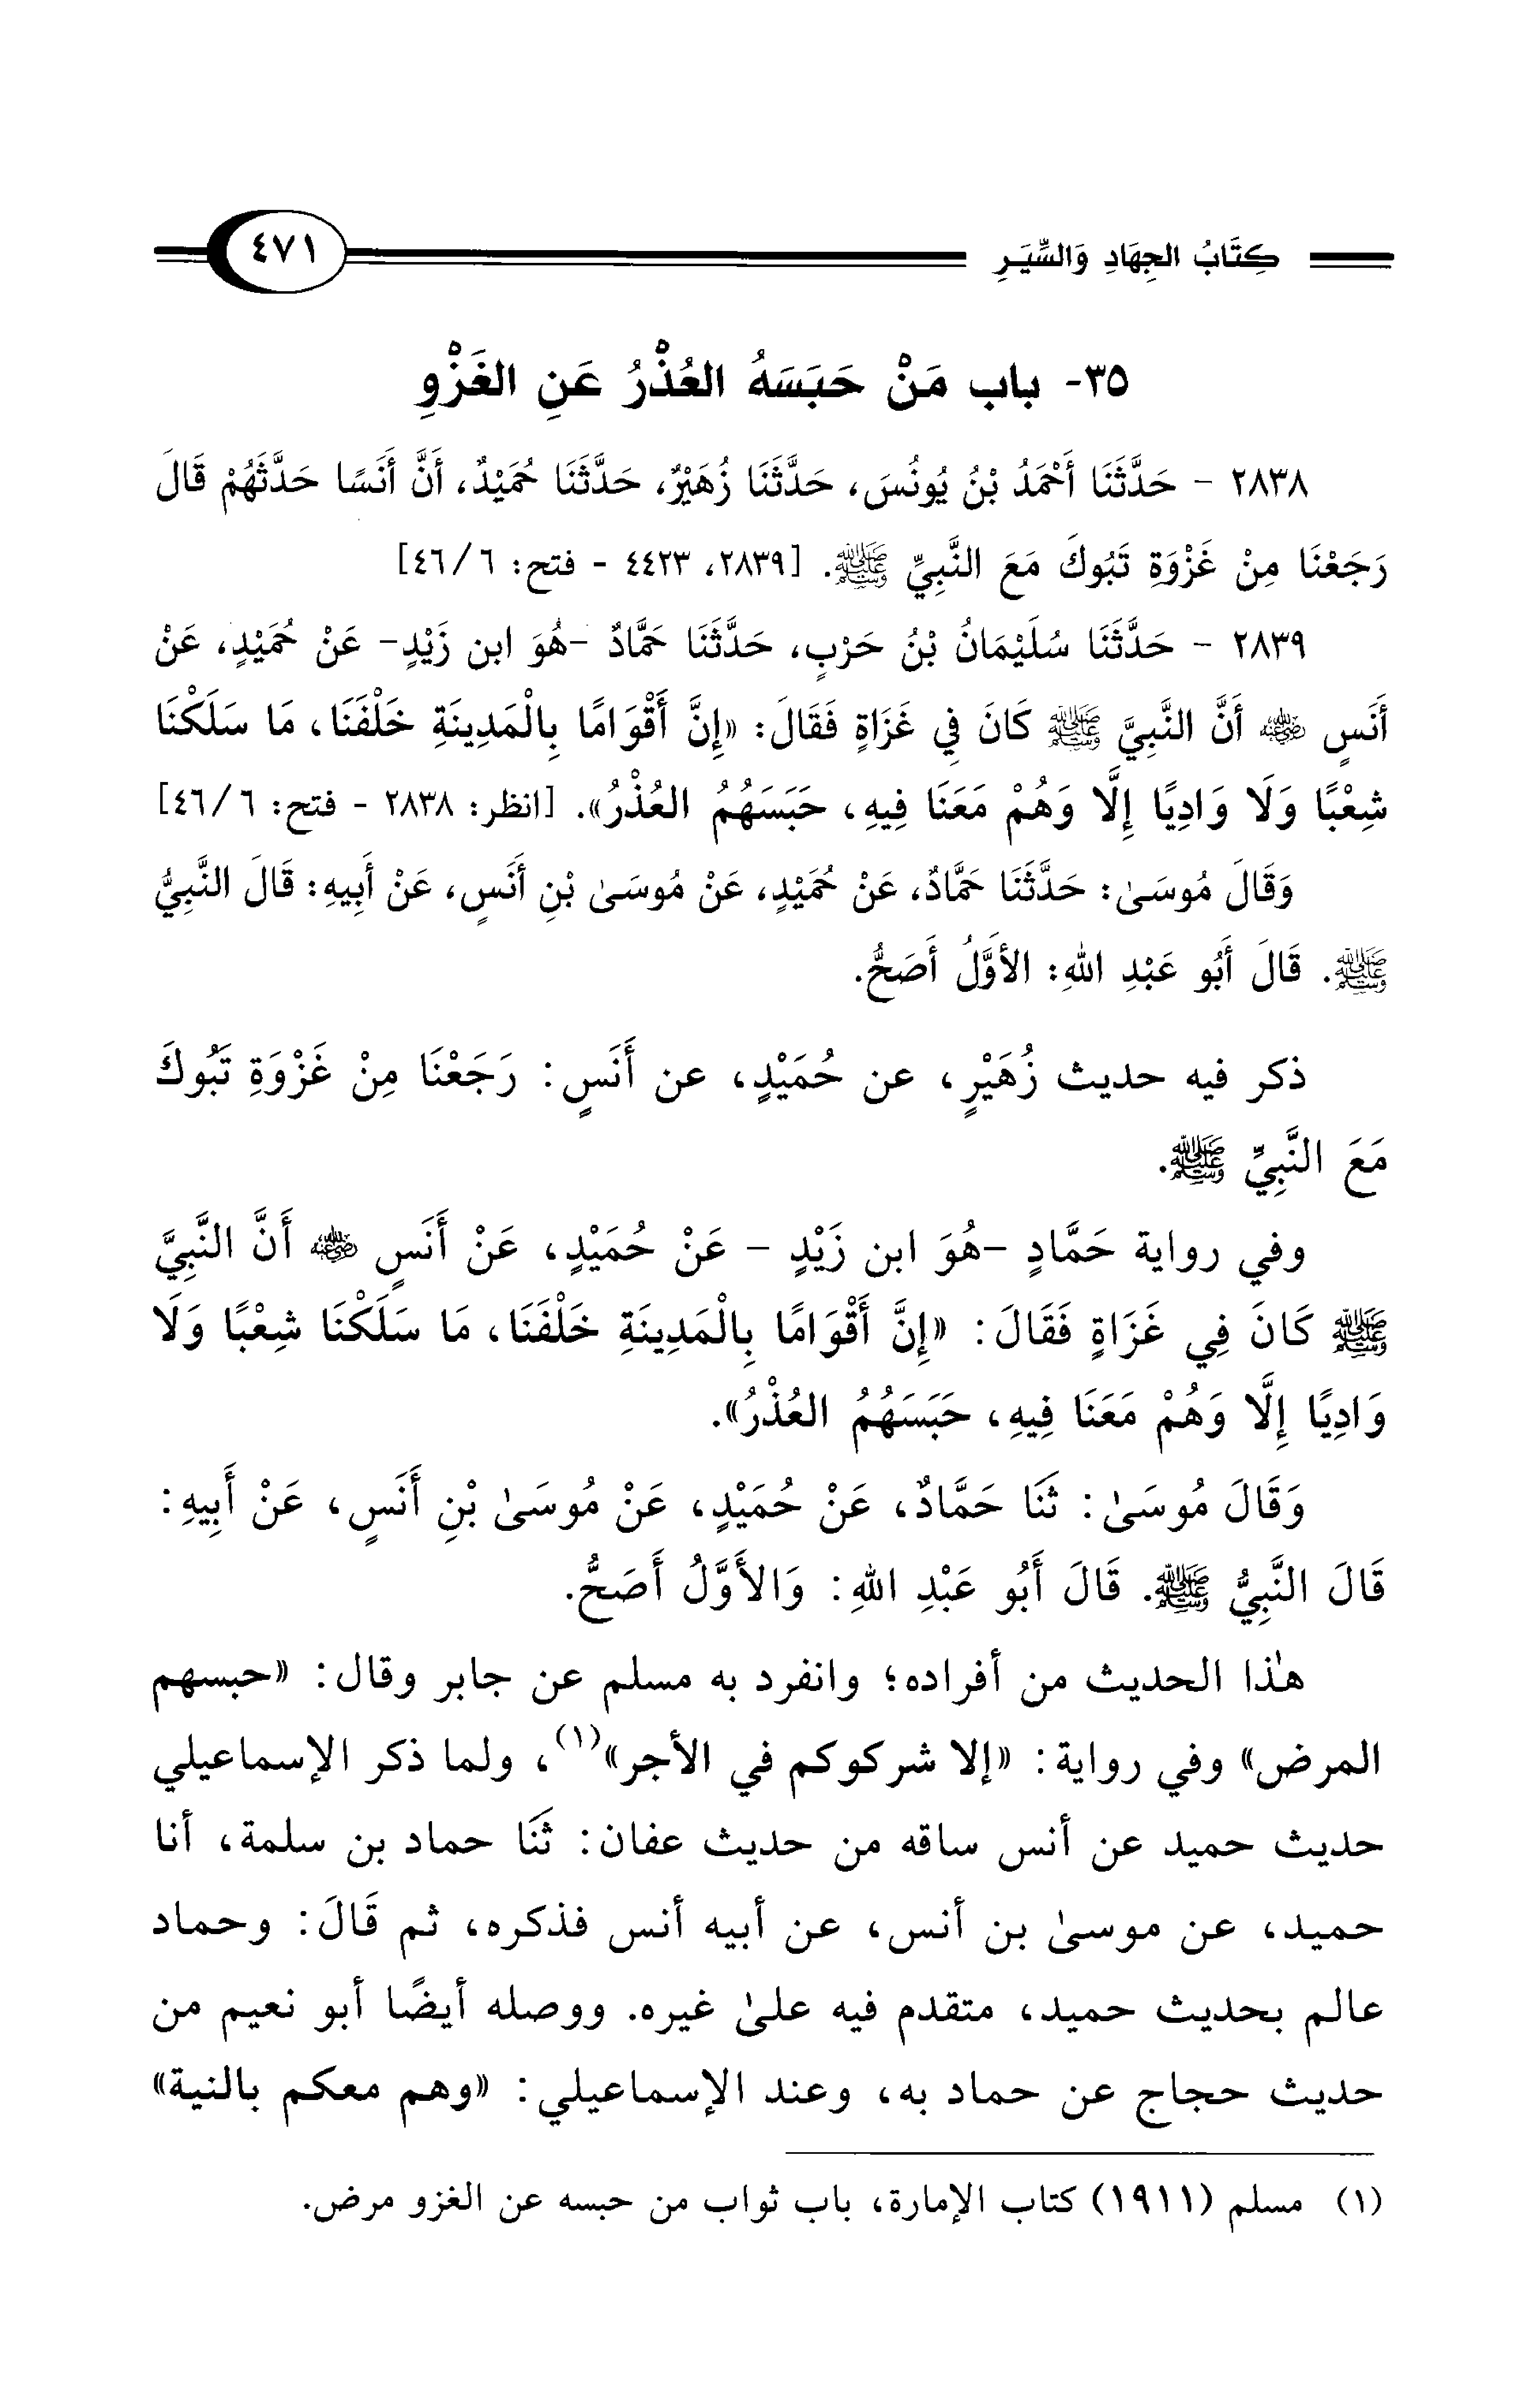 كِتَابُ الجِهَادِ وَالسِّيَرِ
٤٧١
٣٥- باب مَنْ حَبَسَهُ العُذْرُ عَنِ الغَزْوِ
٢٨٣٨ - حَدَّثَنَا أَحْمَدُ بْنُ يُونُسَ، حَدَّثَنَا زُهَيْرٌ، حَدَّثَنَا حُمَيْدٌ، أَنَّ أَنَسًا حَدَّثَهُمْ قَالَ
رَجَعْنَا مِنْ غَزْوَةِ تَبُوكَ مَعَ النَّبِيِّ ﷺ. [٢٨٣٩، ٤٤٢٣ - فتح: ٦/ ٤٦]
٢٨٣٩ - حَدَّثَنَا سُلَيْمَانُ بْنُ حَرْبٍ، حَدَّثَنَا حَمَّادٌ -هُوَ ابن زَيْدٍ- عَنْ حُمَيْدٍ، عَنْ
أَنَسٍ رضي الله عنه أَنَّ النَّبِيَّ ﷺ كَانَ فِي غَزَاةٍ فَقَالَ: «إِنَّ أَقْوَامًا بِالْمَدِينَةِ خَلْفَنَا، مَا سَلَكْنَا
شِعْبًا وَلَا وَادِيًا إِلَّا وَهُمْ مَعَنَا فِيهِ، حَبَسَهُمُ العُذْرُ». [انظر: ٢٨٣٨ - فتح: ٦/ ٤٦]
وَقَالَ مُوسَىٰ: حَدَّثَنَا حَمَّادٌ، عَنْ حُمَيْدٍ، عَنْ مُوسَىٰ بْنِ أَنَسٍ، عَنْ أَبِيهِ: قَالَ النَّبِيُّ
ﷺ. قَالَ أَبُو عَبْدِ اللهِ: الأَوَّلُ أَصَحُّ.
ذكر فيه حديث زُهَيْرٍ، عن حُمَيْدٍ، عن أَنَسٍ: رَجَعْنَا مِنْ غَزْوَةِ تَبُوكَ
مَعَ النَّبِيِّ ﷺ.
وفي رواية حَمَّادٍ -هُوَ ابن زَيْدٍ - عَنْ حُمَيْدٍ، عَنْ أَنَسٍ رضي الله عنه أَنَّ النَّبِيَّ
ﷺ كَانَ فِي غَزَاةٍ فَقَالَ: «إِنَّ أَقْوَامًا بِالْمَدِينَةِ خَلْفَنَا، مَا سَلَكْنَا شِعْبًا وَلَا
وَادِيًا إِلَّا وَهُمْ مَعَنَا فِيهِ، حَبَسَهُمُ العُذْرُ».
وَقَالَ مُوسَىٰ: ثَنَا حَمَّادٌ، عَنْ حُمَيْدٍ، عَنْ مُوسَىٰ بْنِ أَنَسٍ، عَنْ أَبِيهِ:
قَالَ النَّبِيُّ ﷺ. قَالَ أَبُو عَبْدِ اللهِ: وَالأَوَّلُ أَصَحُّ.
هٰذا الحديث من أفراده؛ وانفرد به مسلم عن جابر وقال: «حبسهم
المرض» وفي رواية: «إلا شركوكم في الأجر»(١)، ولما ذكر الإسماعيلي
حديث حميد عن أنس ساقه من حديث عفان: ثَنَا حماد بن سلمة، أنا
حميد، عن موسىٰ بن أنس، عن أبيه أنس فذكره، ثم قَالَ: وحماد
عالم بحديث حميد، متقدم فيه علىٰ غيره. ووصله أيضًا أبو نعيم من
حديث حجاج عن حماد به، وعند الإسماعيلي: «وهم معكم بالنية»
(١) مسلم (١٩١١) كتاب الإمارة، باب ثواب من حبسه عن الغزو مرض.